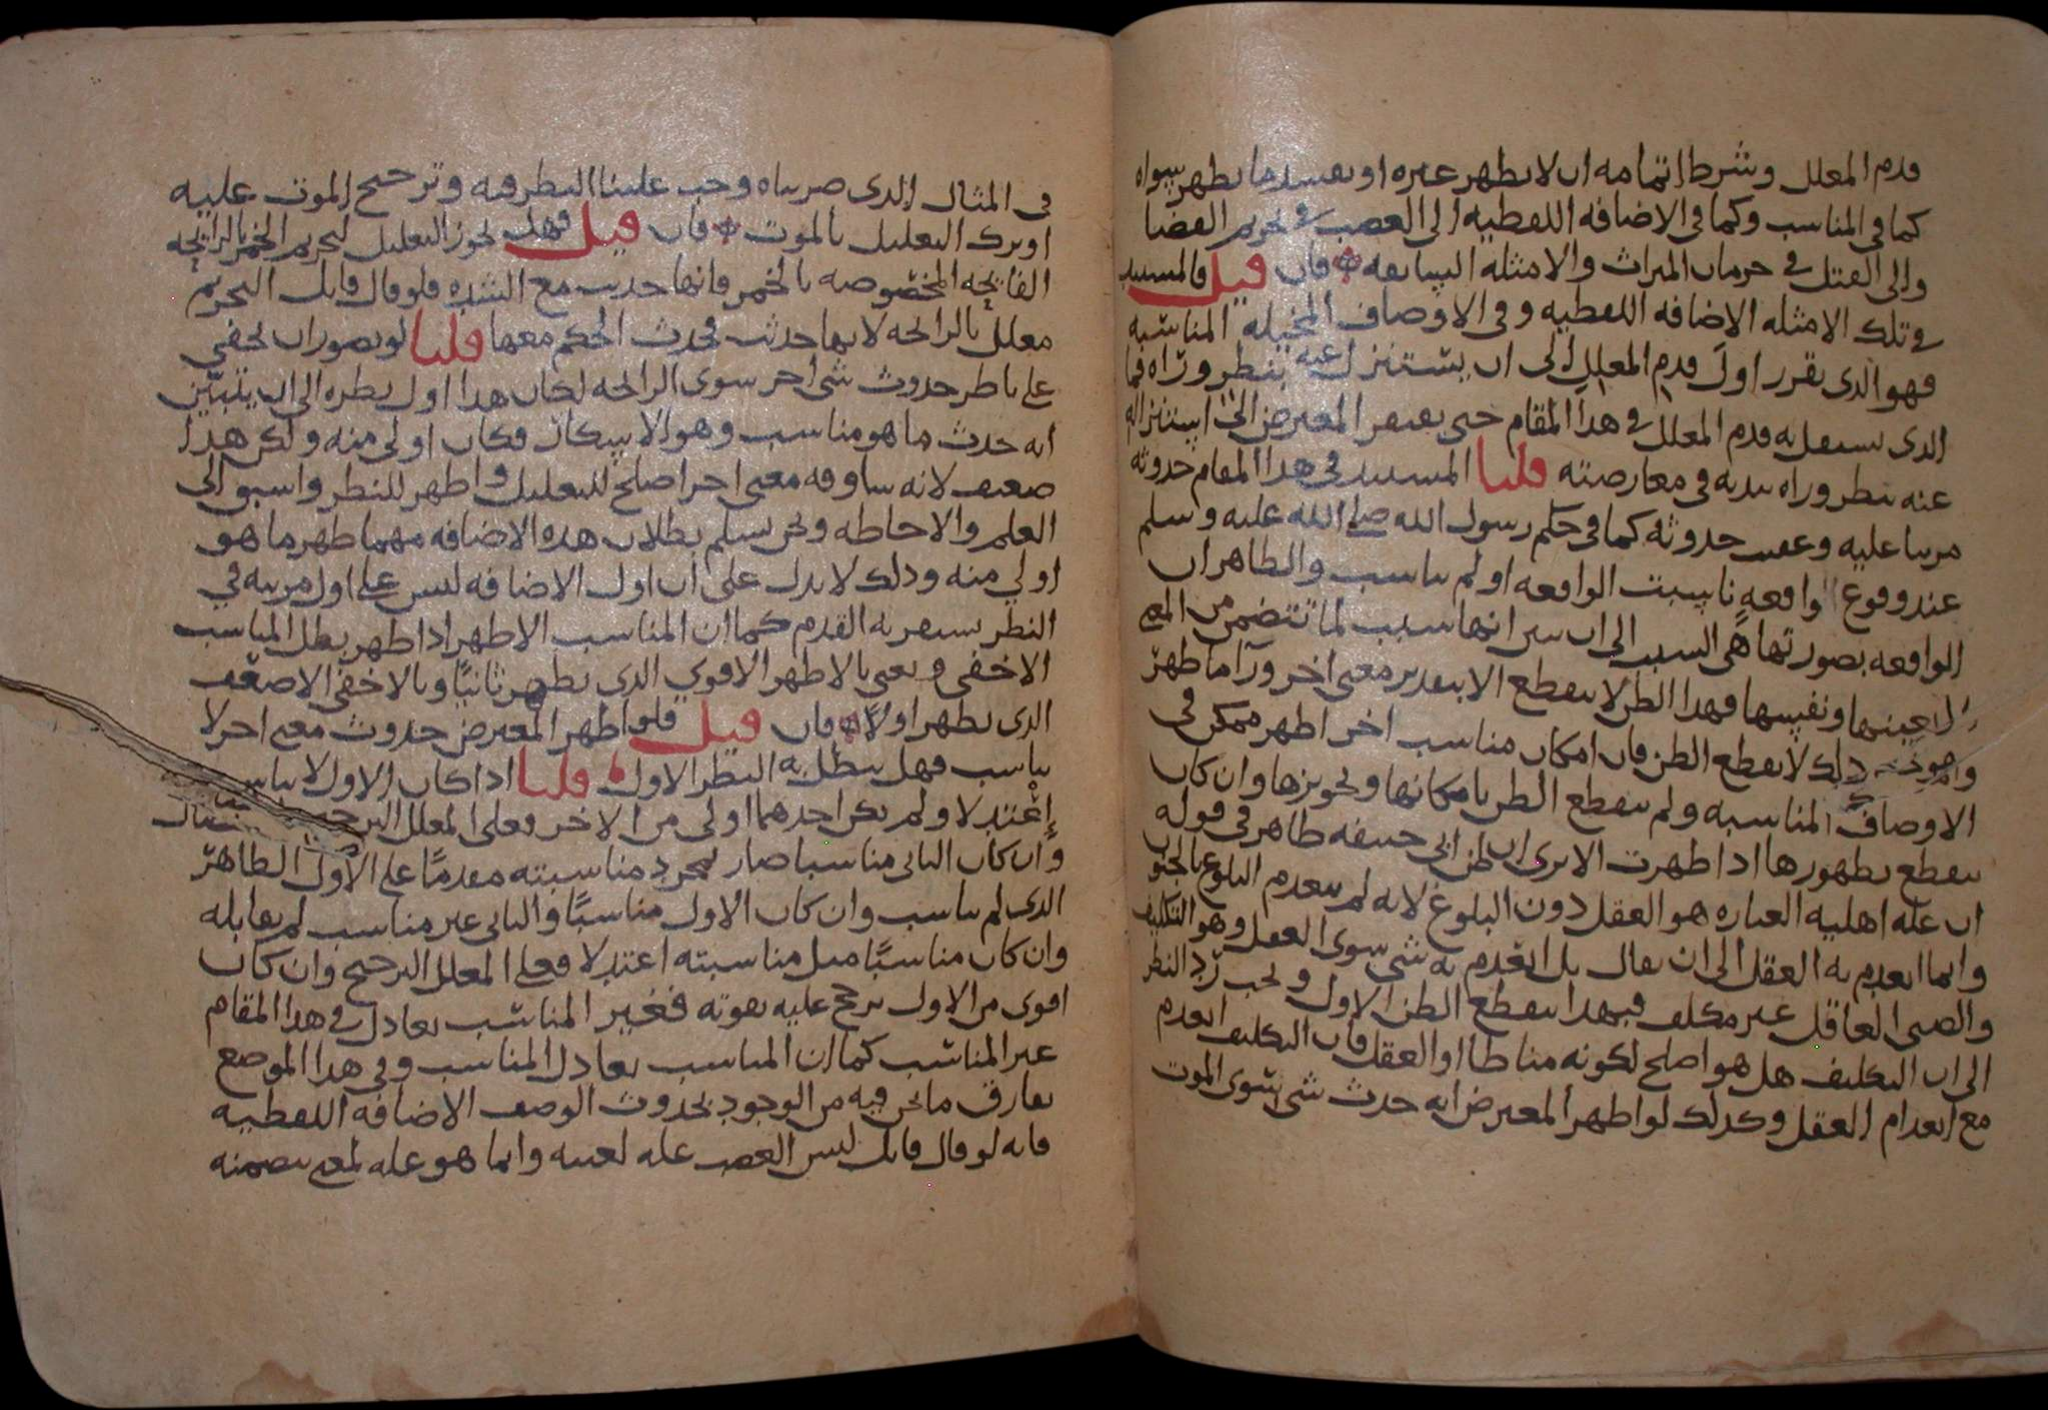 قدم المعلل وشرط اتمامه ان لا يظهر غيره او يفسد ما يظهر سواه
كما في المناسب وكما في الاضافه اللفظيه الى الغضب في تحريم القضا
والى القتل في حرمان الميراث والامثله السابقه فان قيل فالمستند
في تلك الامثله الاضافه اللفظيه وفي الاوصاف المخيله المناسبه
فهو الذى يقرر اول قدم المعلل الى ان يستنزل عنه بنظر وراه فما
الذى يستقل به قدم المعلل في هذا المقام حتى يفتقر المعترض الى استنزاله
عنه بنظر وراه يبديه في معارضته قلنا المستند في هذا المقام حدوثه
مرتبا عليه وعقيب حدوثه كما في حكم رسول الله صلى الله عليه وسلم
عند وقوع واقعه ناسبت الواقعه او لم يناسب والظاهر ان
الواقعه بصورتها هي السبب الى ان يتبين انها سبب لما تتضمن من المعنى
لا لعينها ونفسها فهذا الظن لا ينقطع الا بتقدير معنى اخر ورآ ما ظهر
ذلك لا يقطع الظن فان امكان مناسب اخر اظهر ممكن في
الاوصاف المناسبه ولم ينقطع الظن بامكانها وتجويزها وان كان
ينقطع بظهورها اذا ظهرت الا ترى ان ظن ابي حنيفه ظاهر في قوله
ان عله اهليه العباره هو العقل دون البلوغ لانه لم ينعدم البلوغ بالجنون
وانما انعدم به العقل الى ان يقال بل انعدم به شي سوى العقل وهو التكليف
والصبي العاقل غير مكلف فبهذا ينقطع الظن الاول ويجب رد النظر
الى ان التكليف هل هو اصلح لكونه مناطا او العقل فان التكليف انعدم
مع انعدام العقل وكذلك لو اظهر المعترض انه حدث شي سوى الموت
في المثال الذى ضربناه وجب علينا النظر فيه وترجيح الموت عليه
او ترك التعليل بالموت فان قيل فهل يجوز التعليل لتحريم الخمر بالرايحه
الفايحه المخصوصه بالخمر فانها حدثت مع الشده فلو قال قايل التحريم
معلل بالرايحه لانها حدثت فحدث الحكم معها قلنا لو تصور ان يخفي
على ناظر حدوث شي اخر سوى الرايحه لكان هذا اول نظره الى ان يتبين
انه حدث ما هو مناسب وهو الاسكار فكان اولى منه ولكن هذا
ضعيف لانه ساوقه معنى اخر اصلح للتعليل واظهر للنظر واسبق الى
العلم والاحاطه ونحن نسلم بطلان هذه الاضافه مهما ظهر ما هو
اولي منه وذلك لا يدل على ان اول الاضافه ليس على اول مرتبه في
النظر يستقر به القدم كما ان المناسب الاظهر اذا ظهر بطل المناسب
الاخفى ونعني بالاظهر الاقوي الذى يظهر ثانيًا وبالاخفى الاضعف
الذى يظهر اولاً فان قيل فلو اظهر المعترض حدوث معنى اخر لا
يناسب فهل يبطل به النظر الاول قلنا اذا كان الاول لا يناسب
اعتدلا ولم يكن احدهما اولى من الاخر وعلى المعلل الترجيح
وان كان الثاني مناسبا صار بمجرد مناسبته مقدمًا على الاول الظاهر
الذى لم يناسب وان كان الاول مناسبًا والثاني غير مناسب لم يقابله
وان كان مناسبًا مثل مناسبته اعتدلا فعلى المعلل الترجيح وان كان
اقوى من الاول ترجح عليه بقوته فغير المناسب يعادل في هذا المقام
غير المناسب كما ان المناسب يعادل المناسب وفي هذا الموضع
يفارق ما نحن فيه من الوجود بحدوث الوصف الاضافه اللفظيه
فانه لو قال قايل ليس الغضب عله لعينه وانما هو عله لمعنى يتضمنه